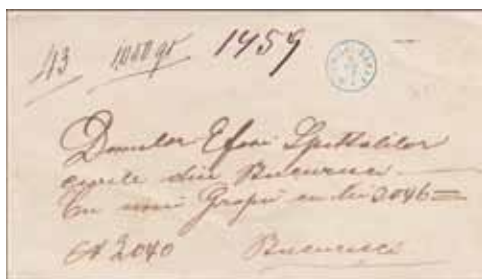 43 1000 gr 1459
Domnilor Efori Spitalilor
civile din Bucuresci
Cu un Grop cu lei 2046
2040 Bucuresci